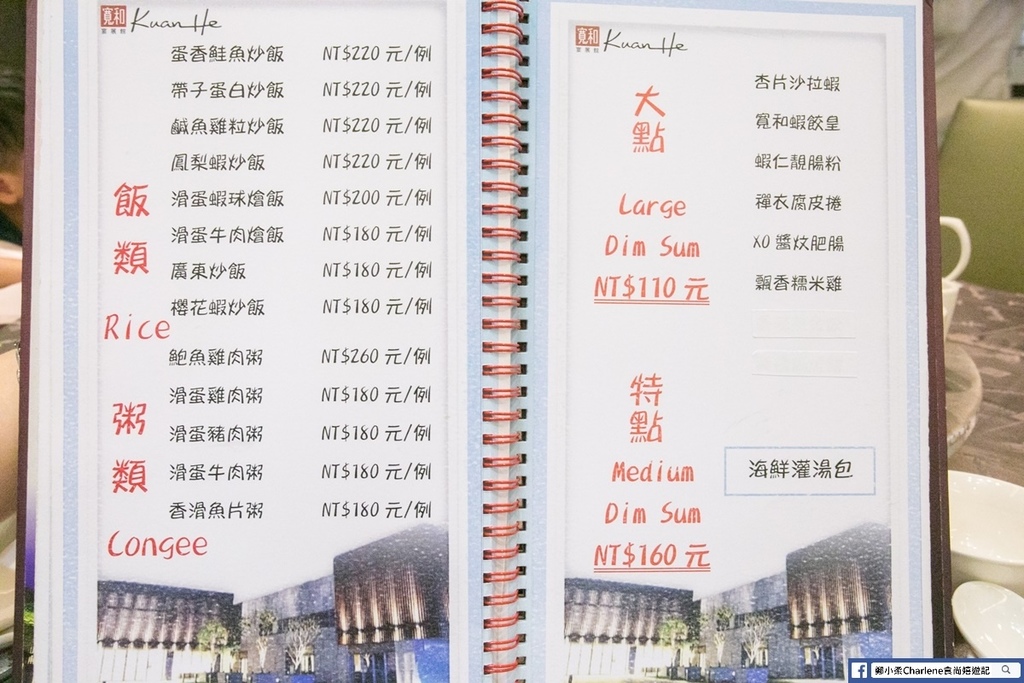 寬和
宴展館
Kuan He
蛋香鮭魚炒飯 NT$220 元/例
帶子蛋白炒飯 NT$220 元/例
鹹魚雞粒炒飯 NT$220 元/例
鳳梨蝦炒飯 NT$220 元/例
滑蛋蝦球燴飯 NT$200 元/例
滑蛋牛肉燴飯 NT$180 元/例
廣東炒飯 NT$180 元/例
櫻花蝦炒飯 NT$180 元/例
飯
類
Rice
鮑魚雞肉粥 NT$260 元/例
滑蛋雞肉粥 NT$180 元/例
滑蛋豬肉粥 NT$180 元/例
滑蛋牛肉粥 NT$180 元/例
香滑魚片粥 NT$180 元/例
粥
類
Congee
寬和
宴展館
Kuan He
大
點
Large
Dim Sum
NT$110 元
杏片沙拉蝦
寬和蝦餃皇
蝦仁靚腸粉
禪衣腐皮捲
XO 醬炆肥腸
飄香糯米雞
特
點
Medium
Dim Sum
NT$160 元
海鮮灌湯包
鄭小柔Charlene食尚嬉遊記